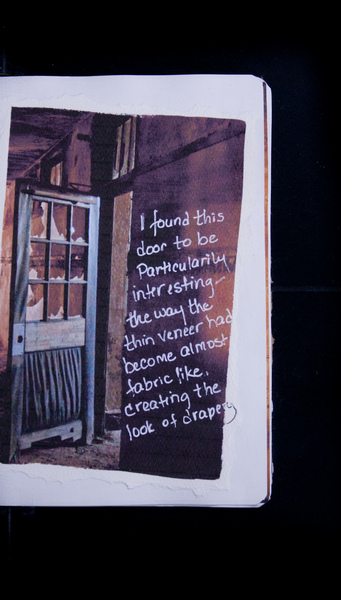 I found this
door to be
Particularily
interesting-
the way the
thin veneer had
become almost
fabric like.
Creating the
look of drapery